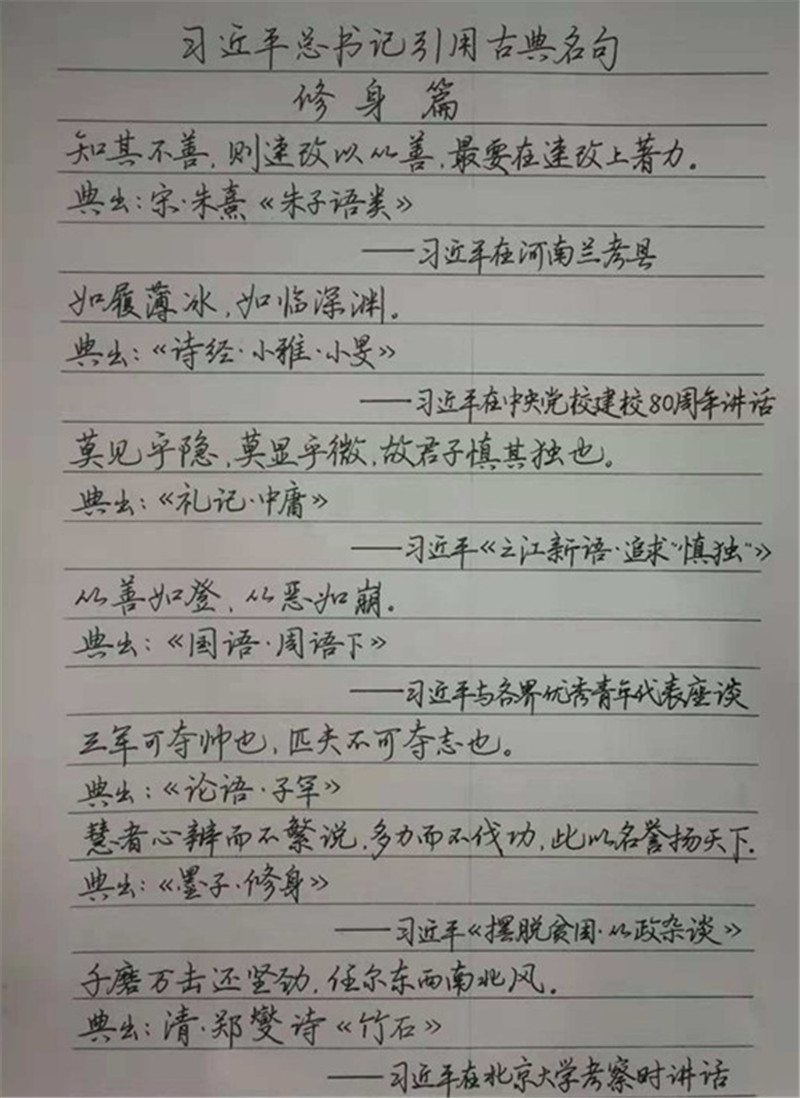 习近平总书记引用古典名句
修身篇
知其不善,则速改以从善,最要在速改上著力。
典出:宋·朱熹《朱子语类》
——习近平在河南兰考县
如履薄冰,如临深渊。
典出:《诗经·小雅·小旻》
——习近平在中央党校建校80周年讲话
莫见乎隐,莫显乎微,故君子慎其独也。
典出:《礼记·中庸》
——习近平《之江新语·追求“慎独”》
从善如登,从恶如崩。
典出:《国语·周语下》
——习近平与各界优秀青年代表座谈
三军可夺帅也,匹夫不可夺志也。
典出:《论语·子罕》
慧者心辨而不繁说,多力而不伐功,此以名誉扬天下.
典出:《墨子·修身》
——习近平《摆脱贫困·从政杂谈》
千磨万击还坚劲,任尔东西南北风。
典出:清·郑燮诗《竹石》
——习近平在北京大学考察时讲话